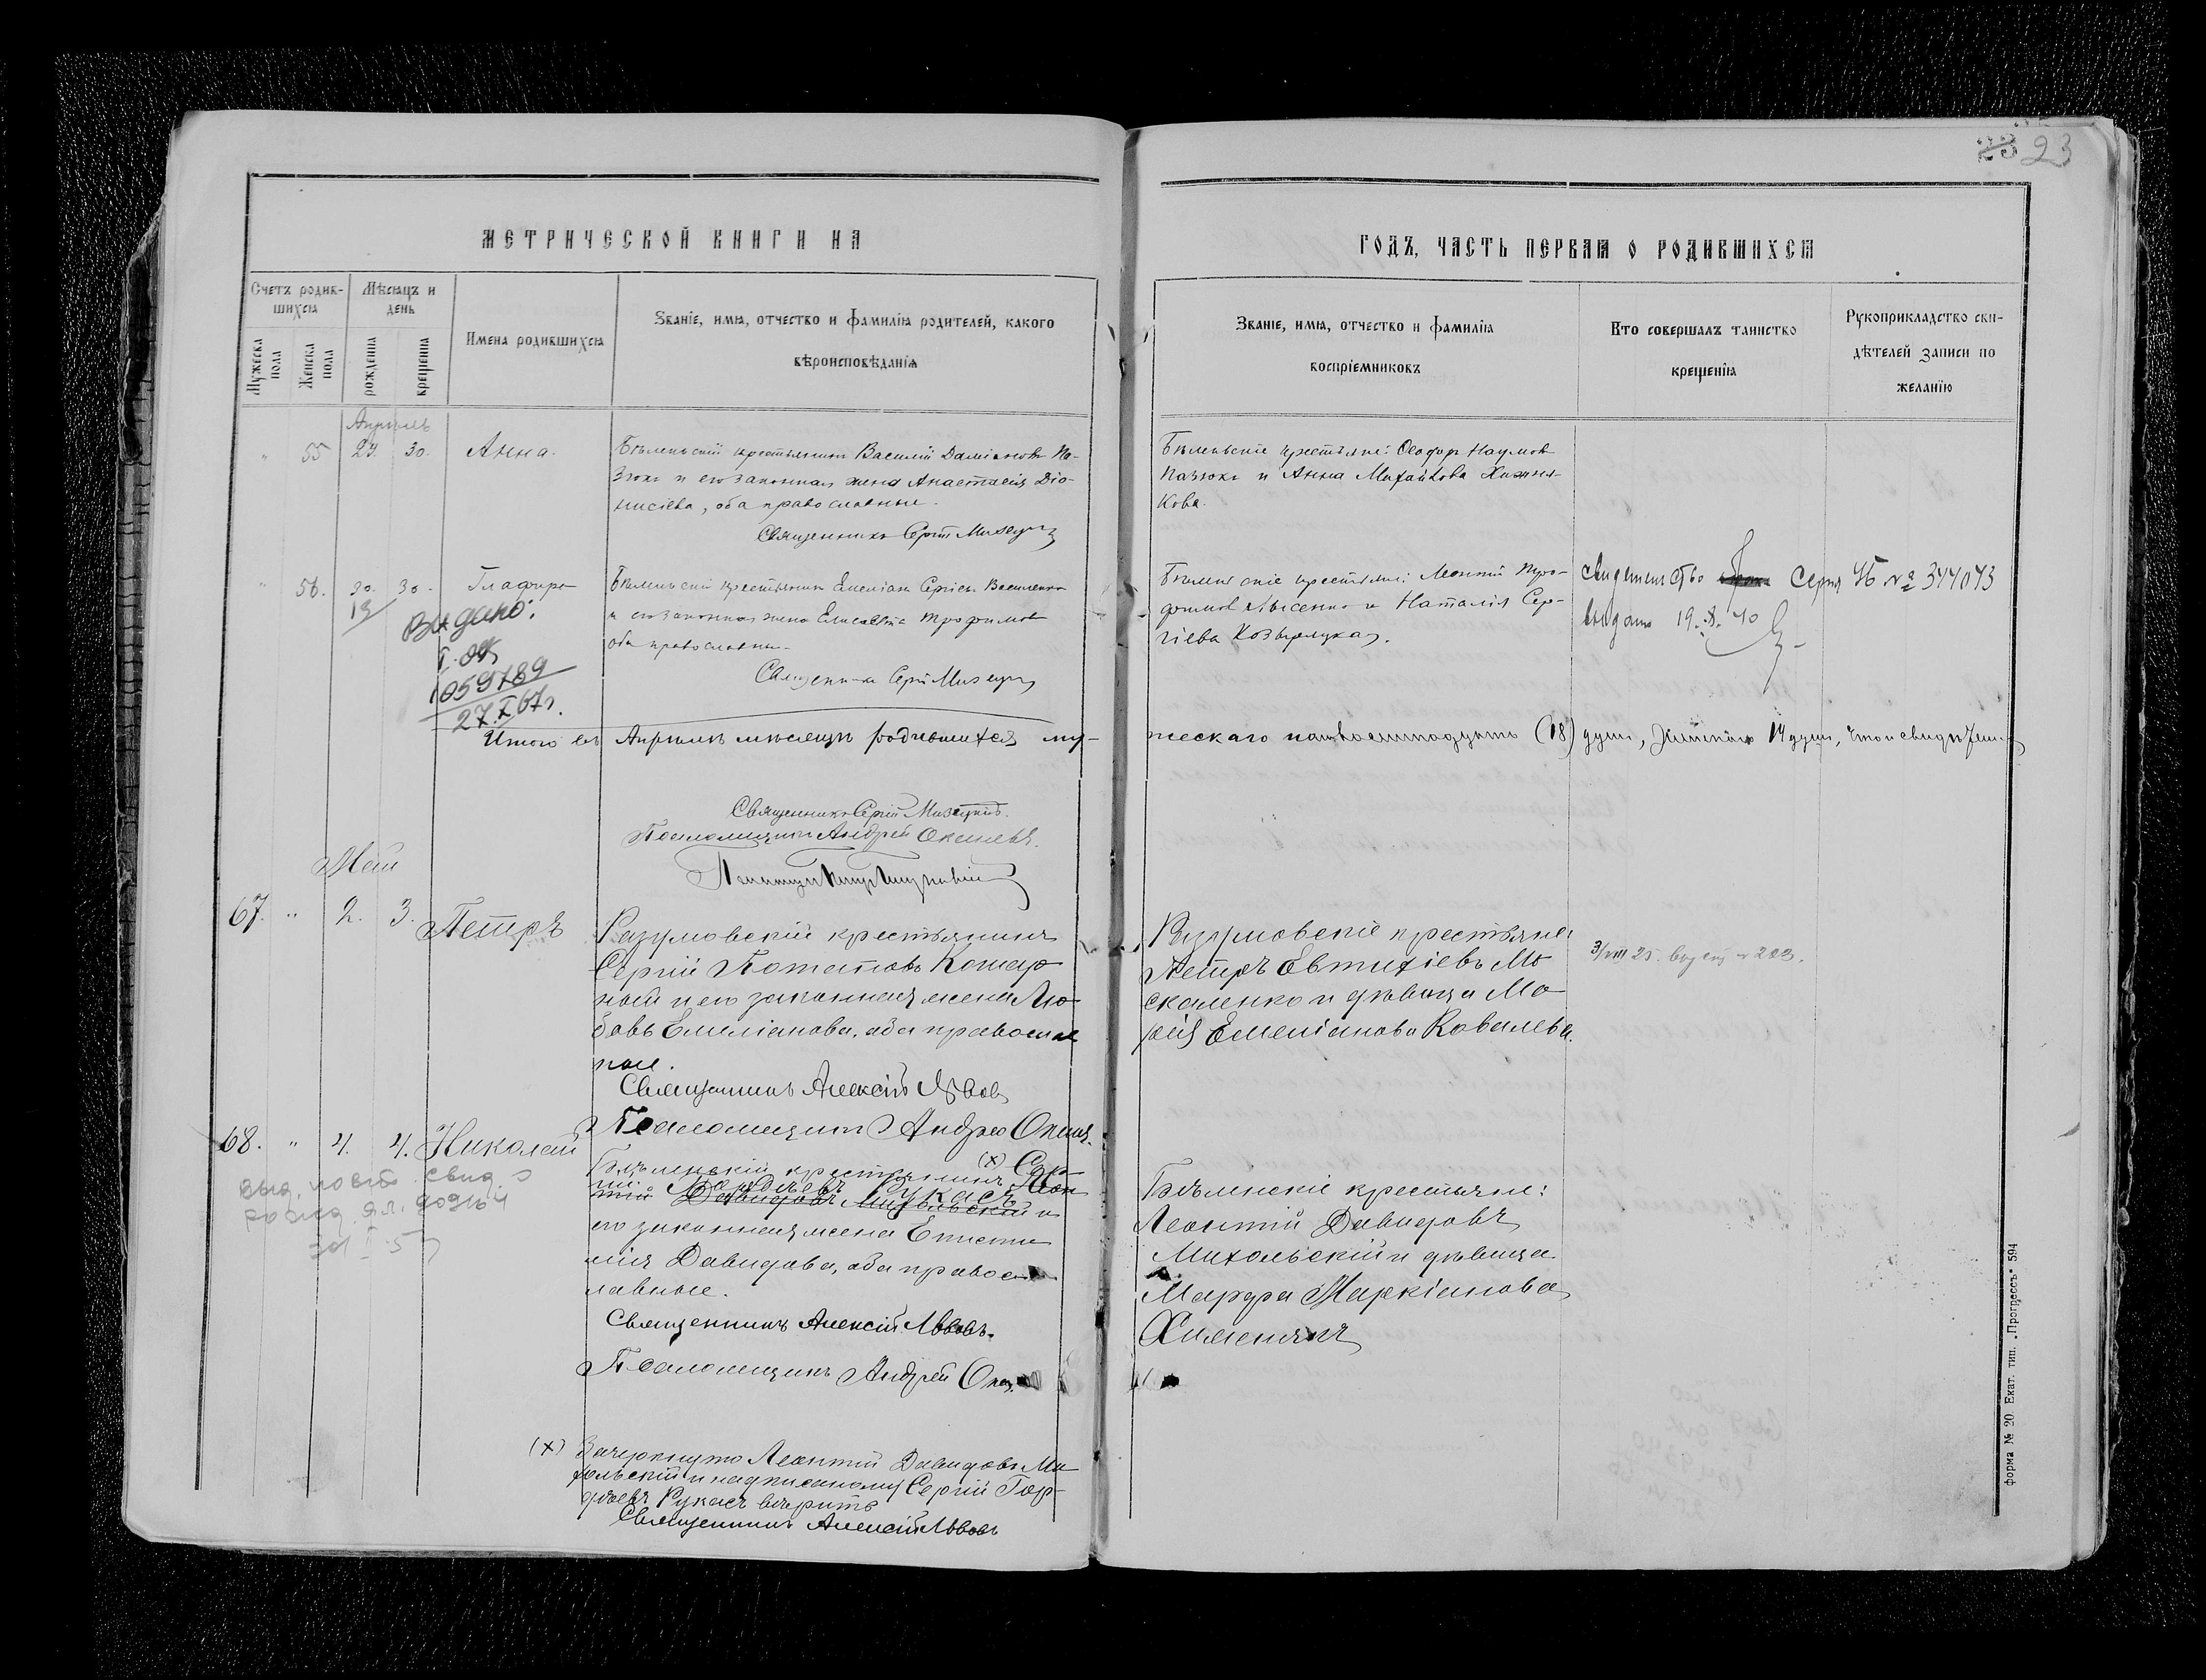 23 23
МЕТРИЧЕСКОЙ КНИГИ НА
ГОДЪ, ЧАСТЬ ПЕРВАЯ О РОДИВШИХСЯ
Счетъ родив-
шихся
Мужеска пола
Женска пола
Мѣсяцъ и
день
рожденія
крещенія
Имена родившихся
Званіе, имя, отчество и фамилія родителей, какого
вѣроисповѣданія
Званіе, имя, отчество и фамилія
воспріемниковъ
Кто совершалъ таинство
крещенія
Рукоприкладство сви-
дѣтелей записи по
желанію
Апрѣль
" 55 29. 30. Анна.
Бѣленьскій крестьянинъ Василій Даміановъ Па-
зюкъ и его законная жена Анастасія Діо-
нисіева, оба православные.
Священникъ Сергій
Бѣленьскіе крестьяне: Ѳеодоръ Наумовъ
Пазюкъ и Анна Михайлова Хижня-
кова.
" 56. 30. 30. Глафира
13
Видано:
1059789
27.X 67г.
Бѣленьскій крестьянинъ Емеліанъ Сергіевъ Василенко
и его законная жена Елисавета Трофимова
оба православны.
Священникъ Сергій
Бѣленьскіе крестьяне: Леонтій Тро-
фимовъ Лысенко и Наталія Сер-
гіева Козырлуцкая.
свидетельство Серия УБ № 344043
выдано 19.X.40
Итого въ Апрѣлѣ мѣсяцѣ родившихся му-
жескаго пола восемнадцать (18) душъ, женскаго 14 душъ, что и свидѣтельст
Священникъ Сергій
Псаломщикъ Андрей
Май
67. " 2. 3. Петръ
Разумовскій крестьянинъ
Сергій Потаповъ Комар-
ный и его законная жена Лю-
бовь Емеліанова, оба православ
ные.
Священникъ Алексій Львовъ
Псаломщикъ Андрей
Разумовскіе крестьяне
Петръ Евтихіевъ Мо-
скаленко и дѣвица Ма-
рія Емеліанова Ковалева.
68. " 4. 4. Николай
выд. повт. свид. о
рожд.
Бѣленскій крестьянинъ (х) Сер-
гій Гордѣевъ Рукасъ Леон
тій Давидовъ Михольскій и
его законная жена Епистим
мія Давидова, оба правос
лавные.
Священникъ Алексій Львовъ.
Псаломщикъ Андрей
Бѣленскіе крестьяне:
Леонтій Давидовъ
Михольскій и дѣвица
Марфа Маркіанова
(х) Зачеркнуто Леонтій Давидовъ Ми-
хольскій и надписаному Сергій Гор-
дѣевъ Рукасъ вѣрить
Священникъ Алексій Львовъ
Форма № 20. Екат. тип. „Прогрессъ" 594